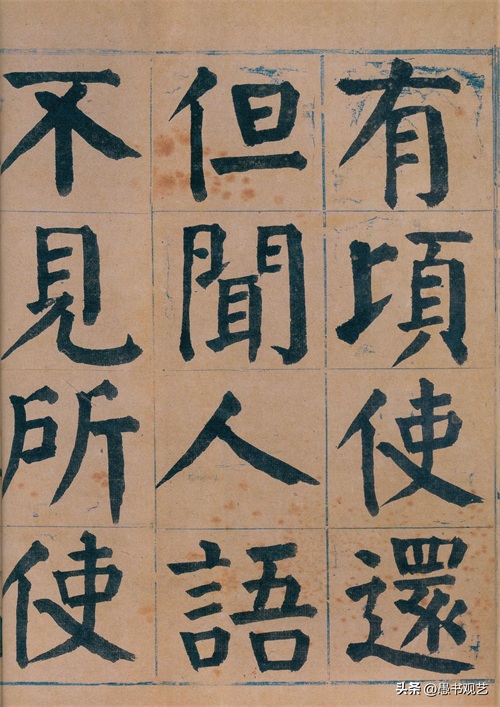 有頃使還
但聞人語
不見所使
头条 @愚书观艺